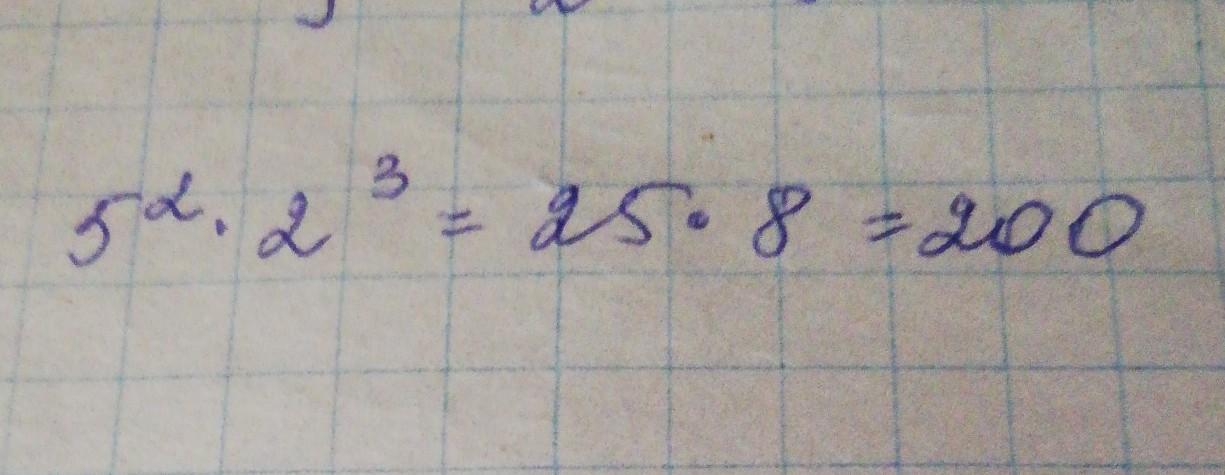 5²· 2³ = 25 · 8 = 200